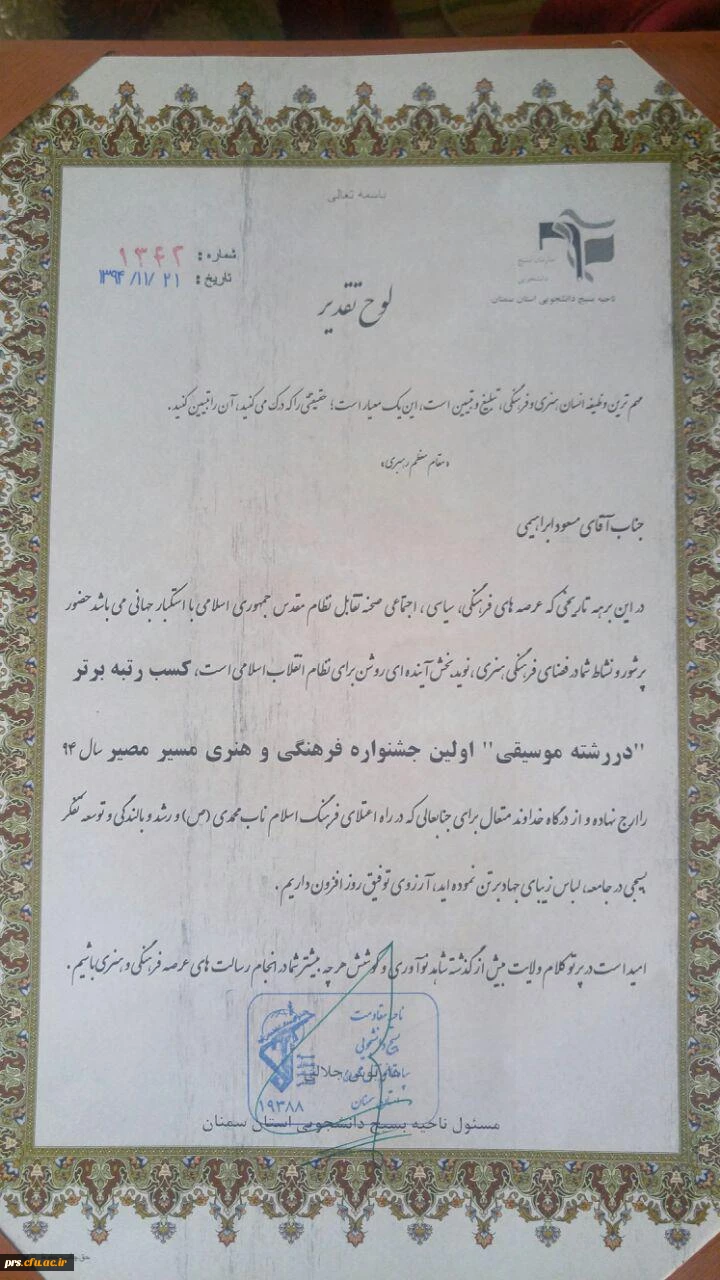 باسمه تعالی
سازمان بسیج
دانشجویی
ناحیه بسیج دانشجویی استان سمنان
شماره : ۱۳۴۲
تاریخ : ۱۳۹۴/۱۱/۲۱
لوح تقدیر
مهم ترین وظیفه انسان هنری و فرهنگی، تبلیغ و تبیین است، این یک معیار است؛ حقیقتی را که درک می کنید، آن را تبیین کنید.
«مقام معظم رهبری»
جناب آقای مسعود ابراهیمی
در این برهه تاریخی که عرصه های فرهنگی، سیاسی ، اجتماعی صحنه تقابل نظام مقدس جمهوری اسلامی با استکبار جهانی می باشد حضور
پرشور و نشاط شما در فضای فرهنگی هنری ، نوید بخش آینده ای روشن برای نظام انقلاب اسلامی است، کسب رتبه برتر
"در رشته موسیقی" اولین جشنواره فرهنگی و هنری مسیر مصیر سال ۹۴
را ارج نهاده و از درگاه خداوند متعال برای جنابعالی که در راه اعتلای فرهنگ اسلام ناب محمدی (ص) و رشد و بالندگی و توسعه تفکر
بسیجی در جامعه، لباس زیبای جهاد بر تن نموده اید، آرزوی توفیق روز افزون داریم .
امید است در پرتو کلام ولایت بیش از گذشته شاهد نوآوری و کوشش هر چه بیشتر شما در انجام رسالت های عرصه فرهنگی و هنری باشیم .
ناحیه مقاومت
بسیج دانشجویی
استان سمنان
۱۹۳۸۸
جلالی
مسئول ناحیه بسیج دانشجویی استان سمنان
prs.cfu.ac.ir